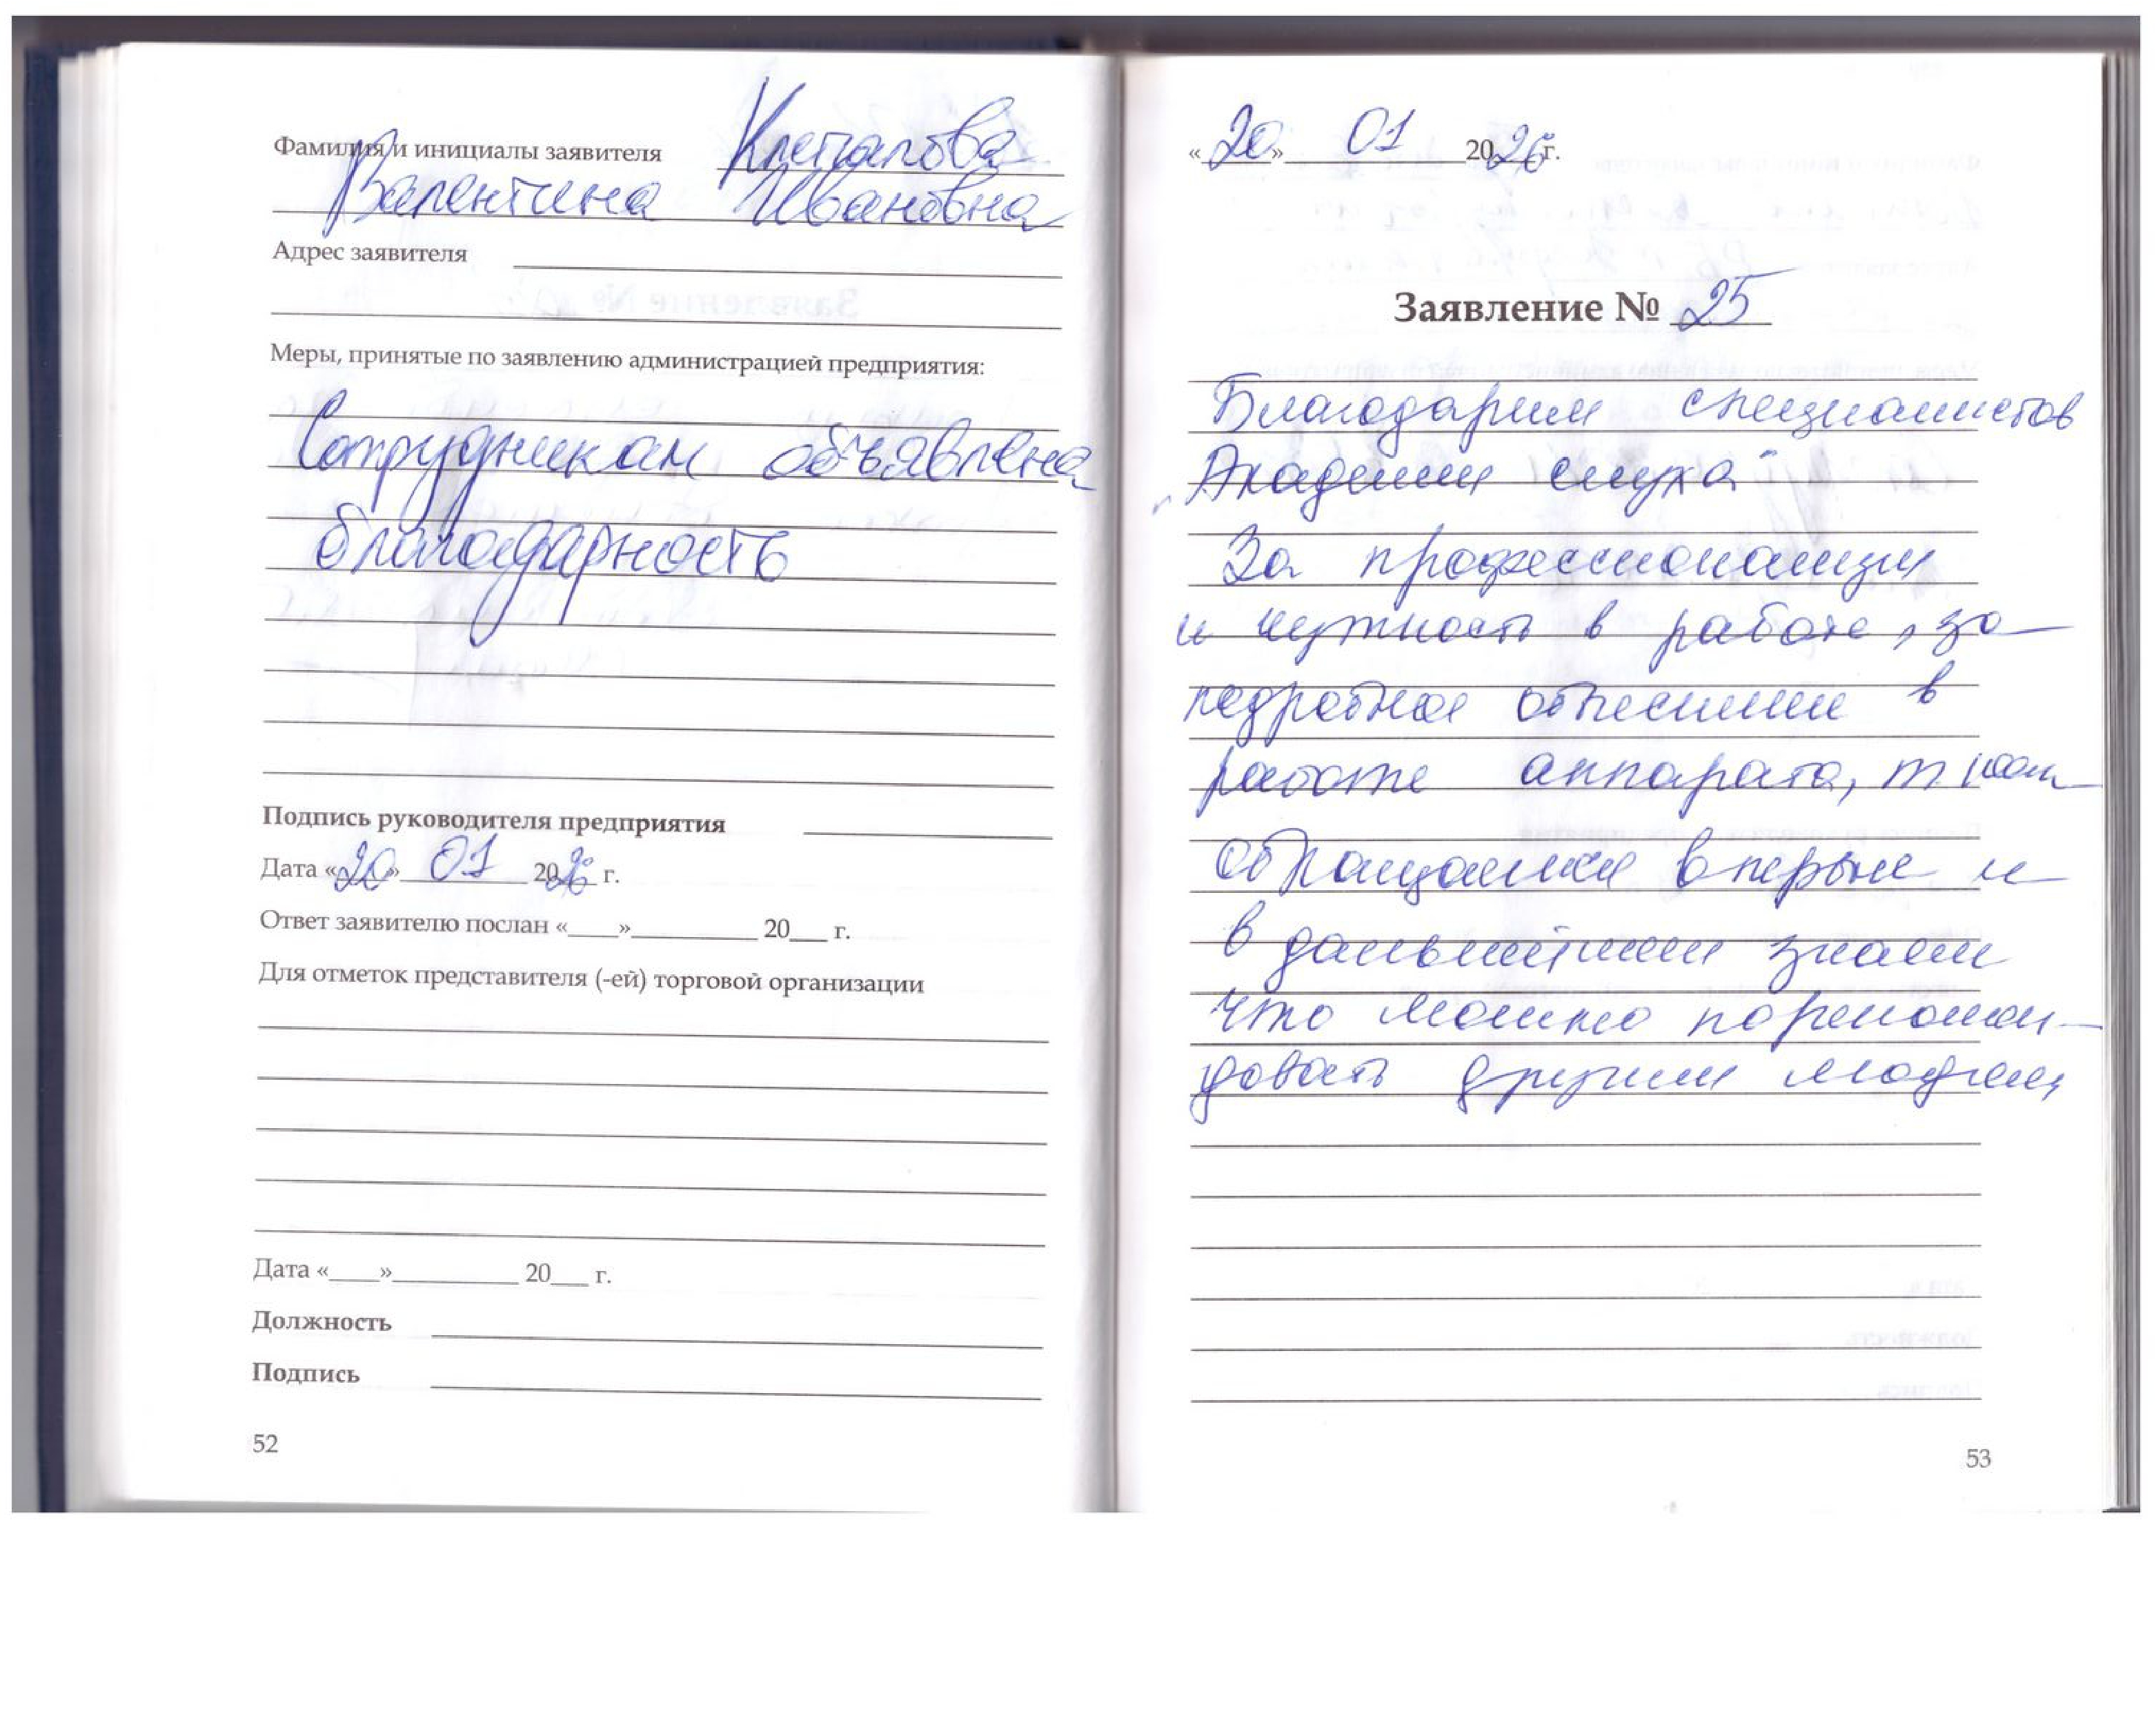 Фамилия и инициалы заявителя Клепалова
Валентина Ивановна
Адрес заявителя
Меры, принятые по заявлению администрацией предприятия:
Сотрудникам объявлена
благодарность
Подпись руководителя предприятия
Дата «20» 01 2026 г.
Ответ заявителю послан «____»__________ 20___ г.
Для отметок представителя (-ей) торговой организации
Дата «____»__________ 20___ г.
Должность
Подпись
52
«20» 01 2026 г.
Заявление № 25
Благодарим специалистов
"Академии слуха"
За профессионализм
и чуткость в работе, за
подробное объяснение в
работе аппарата, т как
обращались впервые и
в дальнейшем знаем
что можно порекомен-
довать другим людям,
53